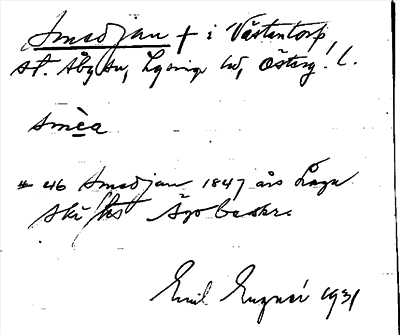 Smedjan † i Västentorp,
st. Åby sn, Lysings hd, Österg. l.
smèa
# 46 Smedjan 1847 års Laga
skiftes Ägobeskr.
Emil 1931